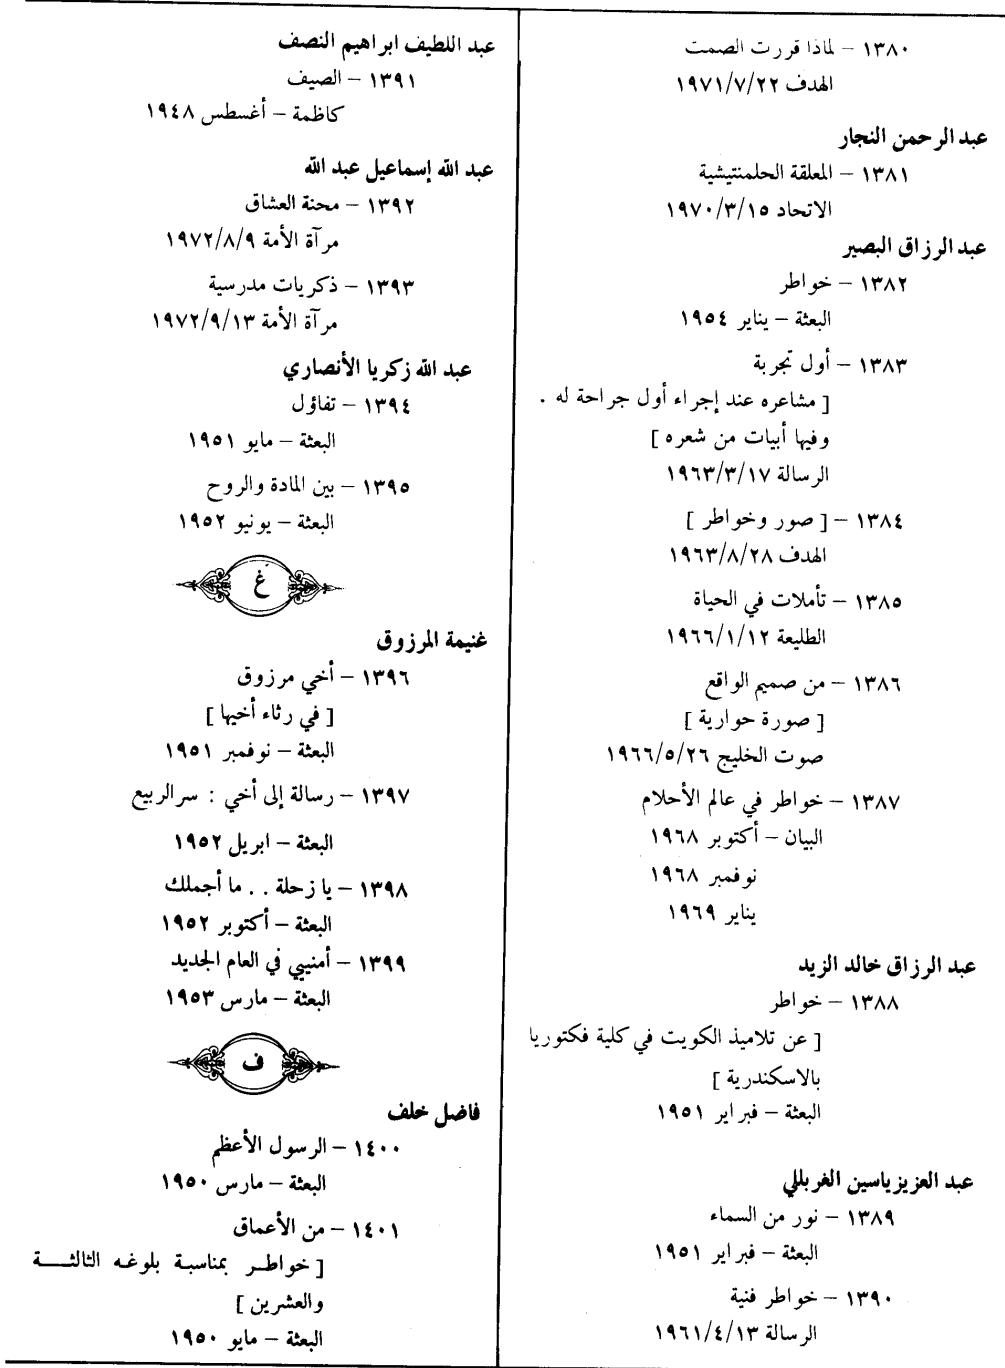 ١٣٨٠ – لماذا قررت الصمت
الهدف ١٩٧١/٧/٢٢
عبد الرحمن النجار
١٣٨١ – المعلقة الحلمنتيشية
الاتحاد ١٩٧٠/٣/١٥
عبد الرزاق البصير
١٣٨٢ – خواطر
البعثة – يناير ١٩٥٤
١٣٨٣ – أول تجربة
[ مشاعره عند إجراء أول جراحة له .
وفيها أبيات من شعره ]
الرسالة ١٩٦٣/٣/١٧
١٣٨٤ – [ صور وخواطر ]
الهدف ١٩٦٣/٨/٢٨
١٣٨٥ – تأملات في الحياة
الطليعة ١٩٦٦/١/١٢
١٣٨٦ – من صميم الواقع
[ صورة حوارية ]
صوت الخليج ١٩٦٦/٥/٢٦
١٣٨٧ – خواطر في عالم الأحلام
البيان – أكتوبر ١٩٦٨
نوفمبر ١٩٦٨
يناير ١٩٦٩
عبد الرزاق خالد الزيد
١٣٨٨ – خواطر
[ عن تلاميذ الكويت في كلية فكتوريا
بالاسكندرية ]
البعثة – فبراير ١٩٥١
عبد العزيز ياسين الغربللي
١٣٨٩ – نور من السماء
البعثة – فبراير ١٩٥١
١٣٩٠ – خواطر فنية
الرسالة ١٩٦١/٤/١٣
عبد اللطيف ابراهيم النصف
١٣٩١ – الصيف
كاظمة – أغسطس ١٩٤٨
عبد الله إسماعيل عبد الله
١٣٩٢ – محنة العشاق
مرآة الأمة ١٩٧٢/٨/٩
١٣٩٣ – ذكريات مدرسية
مرآة الأمة ١٩٧٢/٩/١٣
عبد الله زكريا الأنصاري
١٣٩٤ – تفاؤل
البعثة – مايو ١٩٥١
١٣٩٥ – بين المادة والروح
البعثة – يونيو ١٩٥٢
غ
غنيمة المرزوق
١٣٩٦ – أخي مرزوق
[ في رثاء أخيها ]
البعثة – نوفمبر ١٩٥١
١٣٩٧ – رسالة إلى أخي : سر الربيع
البعثة – ابريل ١٩٥٢
١٣٩٨ – يا زحلة . . ما أجملك
البعثة – أكتوبر ١٩٥٢
١٣٩٩ – أمنيبي في العام الجديد
البعثة – مارس ١٩٥٣
ف
فاضل خلف
١٤٠٠ – الرسول الأعظم
البعثة – مارس ١٩٥٠
١٤٠١ – من الأعماق
[ خواطـر بمناسبة بلوغه الثالثـــة
والعشرين ]
البعثة – مايو ١٩٥٠